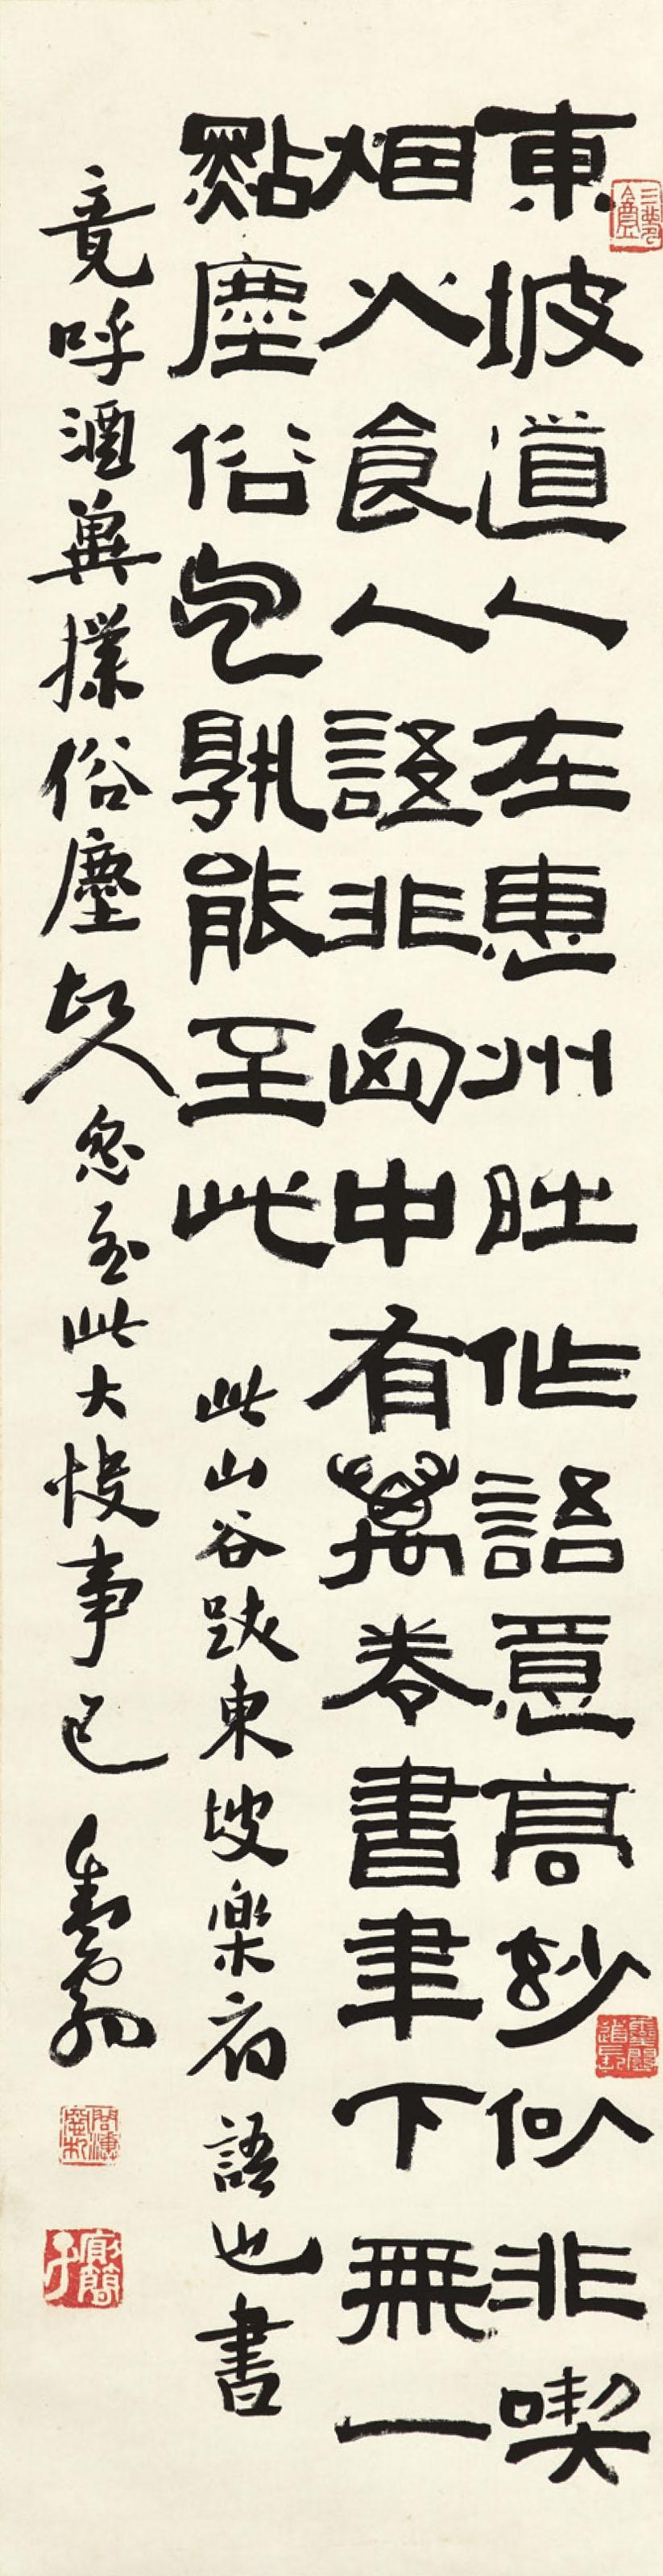 東坡道人在惠州時作語意高妙似非喫
烟火食人語非匈中有萬卷書聿下無一
點塵俗气孰能至此 此山谷跋東坡樂府語也書
竟呼酒冀撲俗塵故人忽至此大快事已